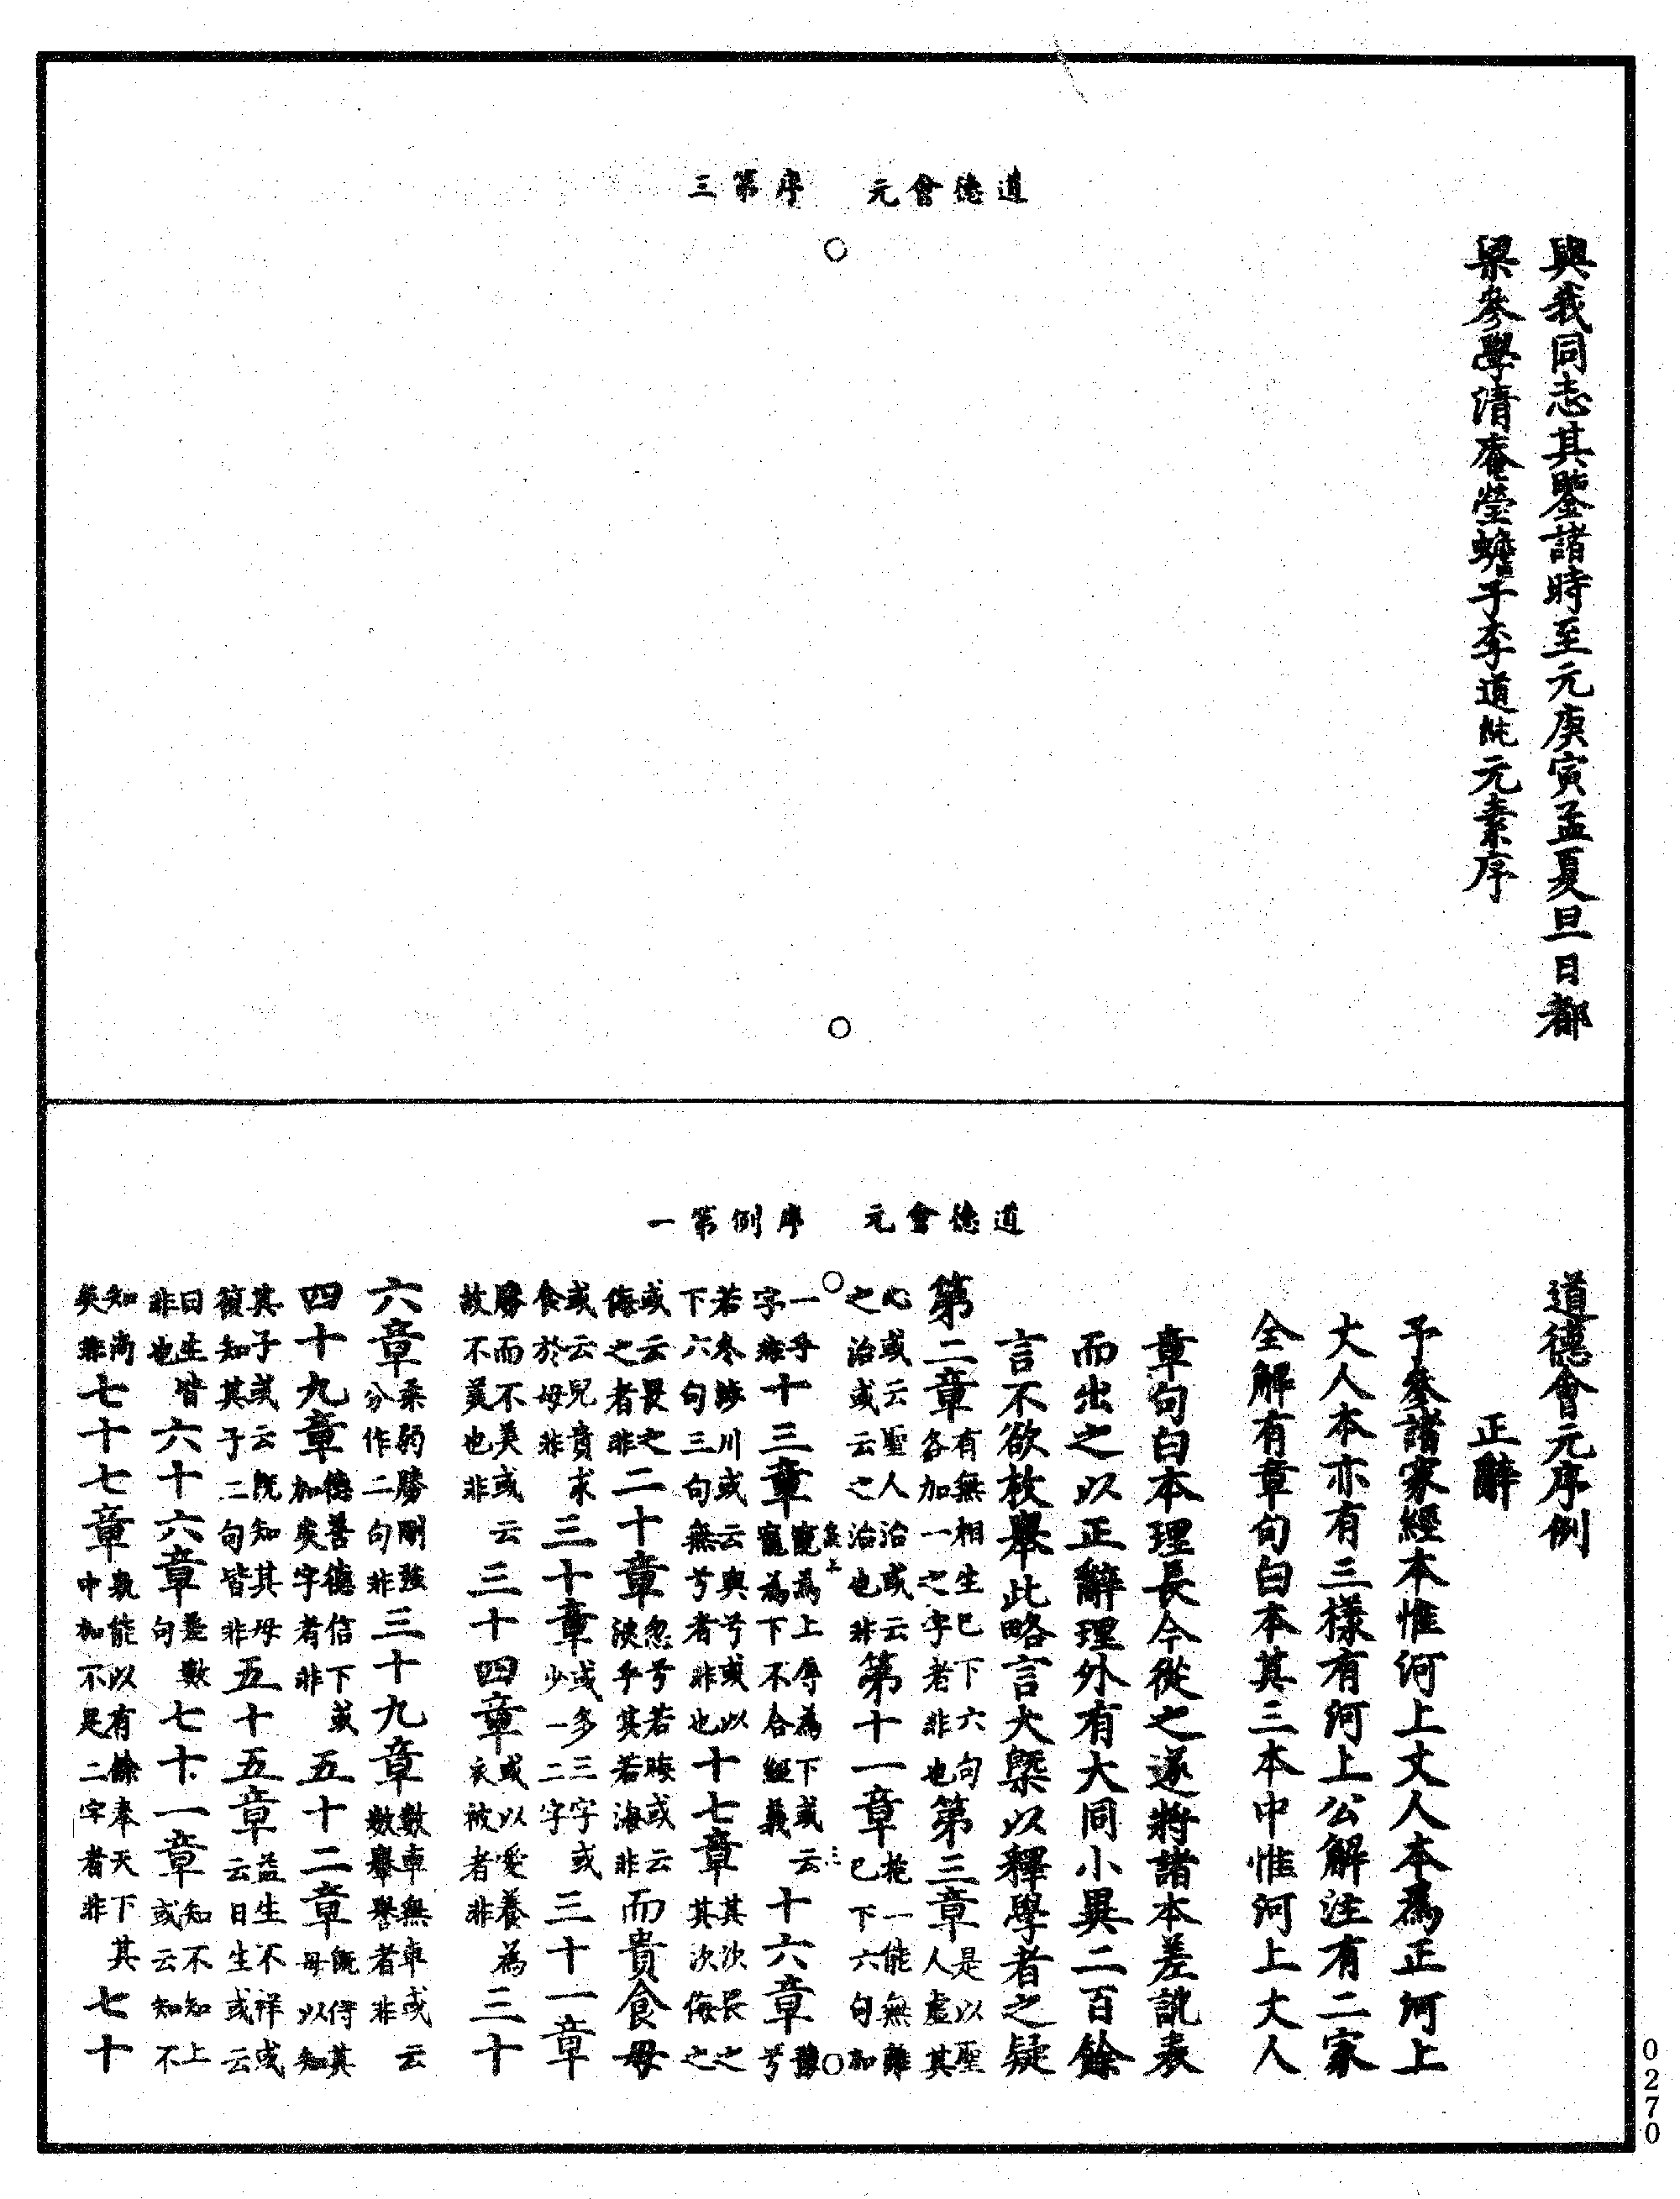 道德會元　序第三
與我同志其鑒諸時至元庚寅孟夏旦日都
梁參學清庵瑩蟾子李道純元素序
道德會元　序例第一
道德會元序例
正辭
予參諸家經本惟河上丈人本為正河上
丈人本亦有三樣有河上公解注有二家
全解有章句白本其三本中惟河上丈人
章句白本理長今從之遂將諸本差訛表
而出之以正辭理外有大同小異二百餘
言不欲枚舉此略言大槩以釋學者之疑
第二章有無相生已下六句
各加一之字者非也第三章是以聖
人虛其
心或云聖人治或云
之治或云之治也非第十一章抱一能無離
已下六句加
一乎
字非十三章寵為上辱為下或云
寵為下不合經義十六章豫
兮
若冬涉川或云與兮或以
下六句三句無兮者非也十七章其次畏之
其次侮之
或云畏之
侮之者非二十章忽兮若晦或云
漠乎其若海非而貴食母
或云兒貴求
食於母非三十章或多三字或
少一二字三十一章
勝而不美或云
故不美也非三十四章或以愛養為
衣被者非三十
六章柔弱勝剛強
分作二句非三十九章數車無車或云
數舉譽者非
四十九章德善德信下或
加矣字者非五十二章既得其
母以知
其子或云既知其母
復知其子二句皆非五十五章益生不祥或
云日生或云
曰生皆
非也六十六章是數
句七十一章知不知上
或云知不
知尚
矣非七十七章孰能以有餘奉天下其
中加不足二字者非七十
0270